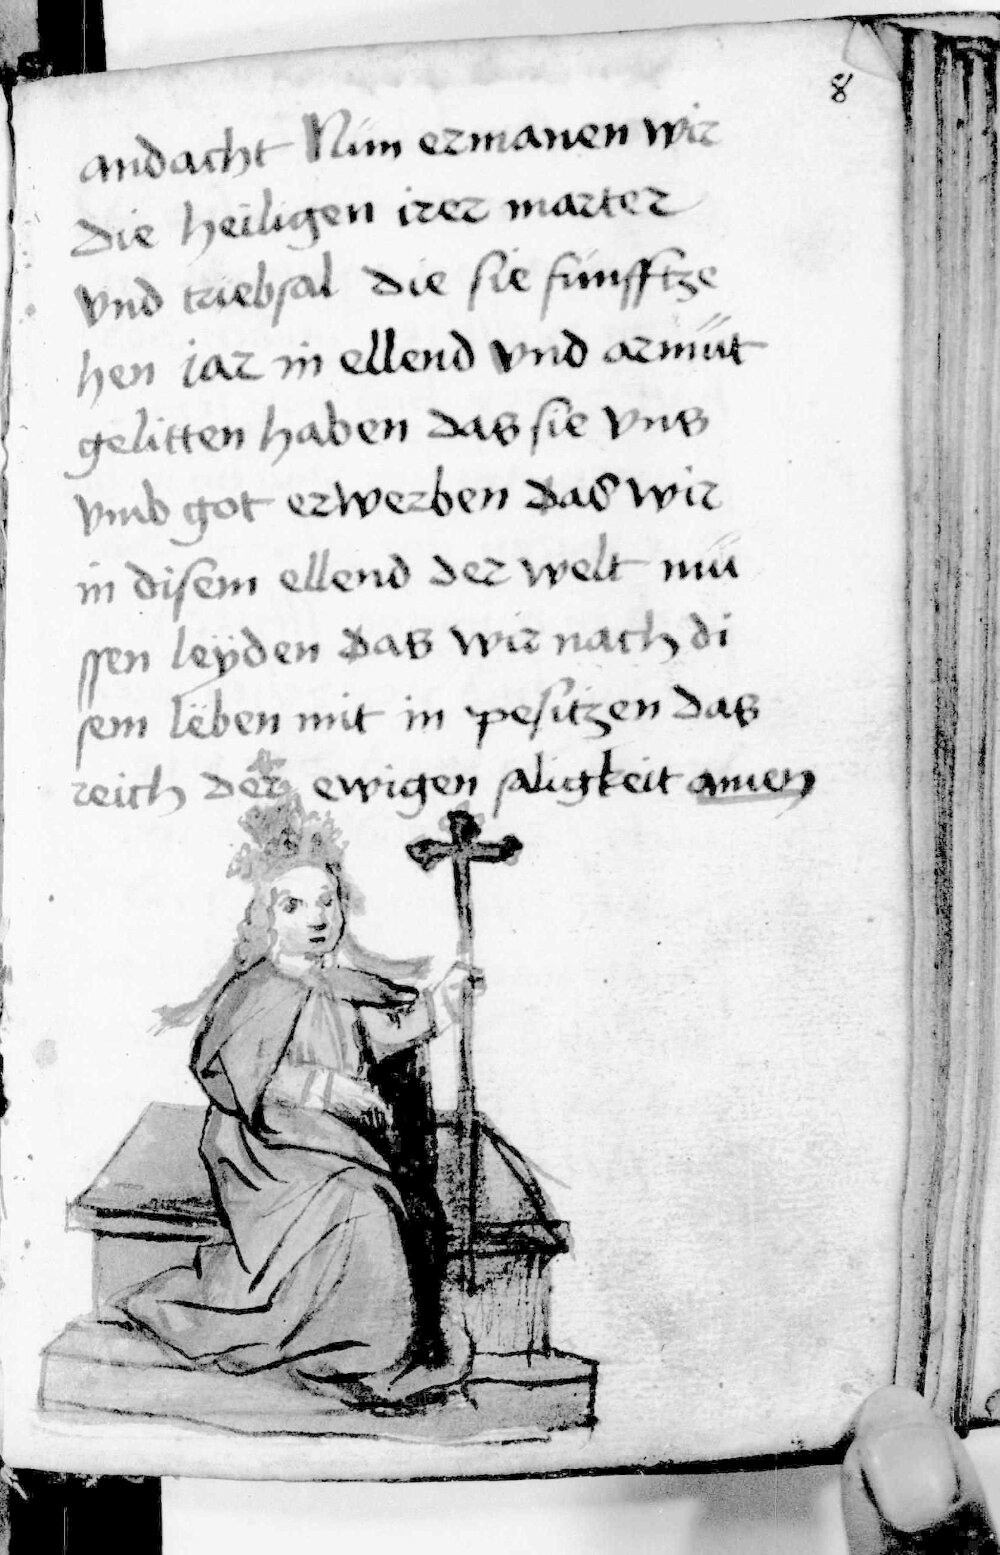 8
andacht Nün ermanen wir
die heiligen irer marter
vnd triebsal die sie fünfftze
hen jar in ellend vnd armüt
gelitten haben das sie vns
vmb got erwerben das wir
in disem ellend der welt mü
ssen leÿden das wir nach di
sem lëben mit in pesitzen das
reich der ewigen saligkeit amen